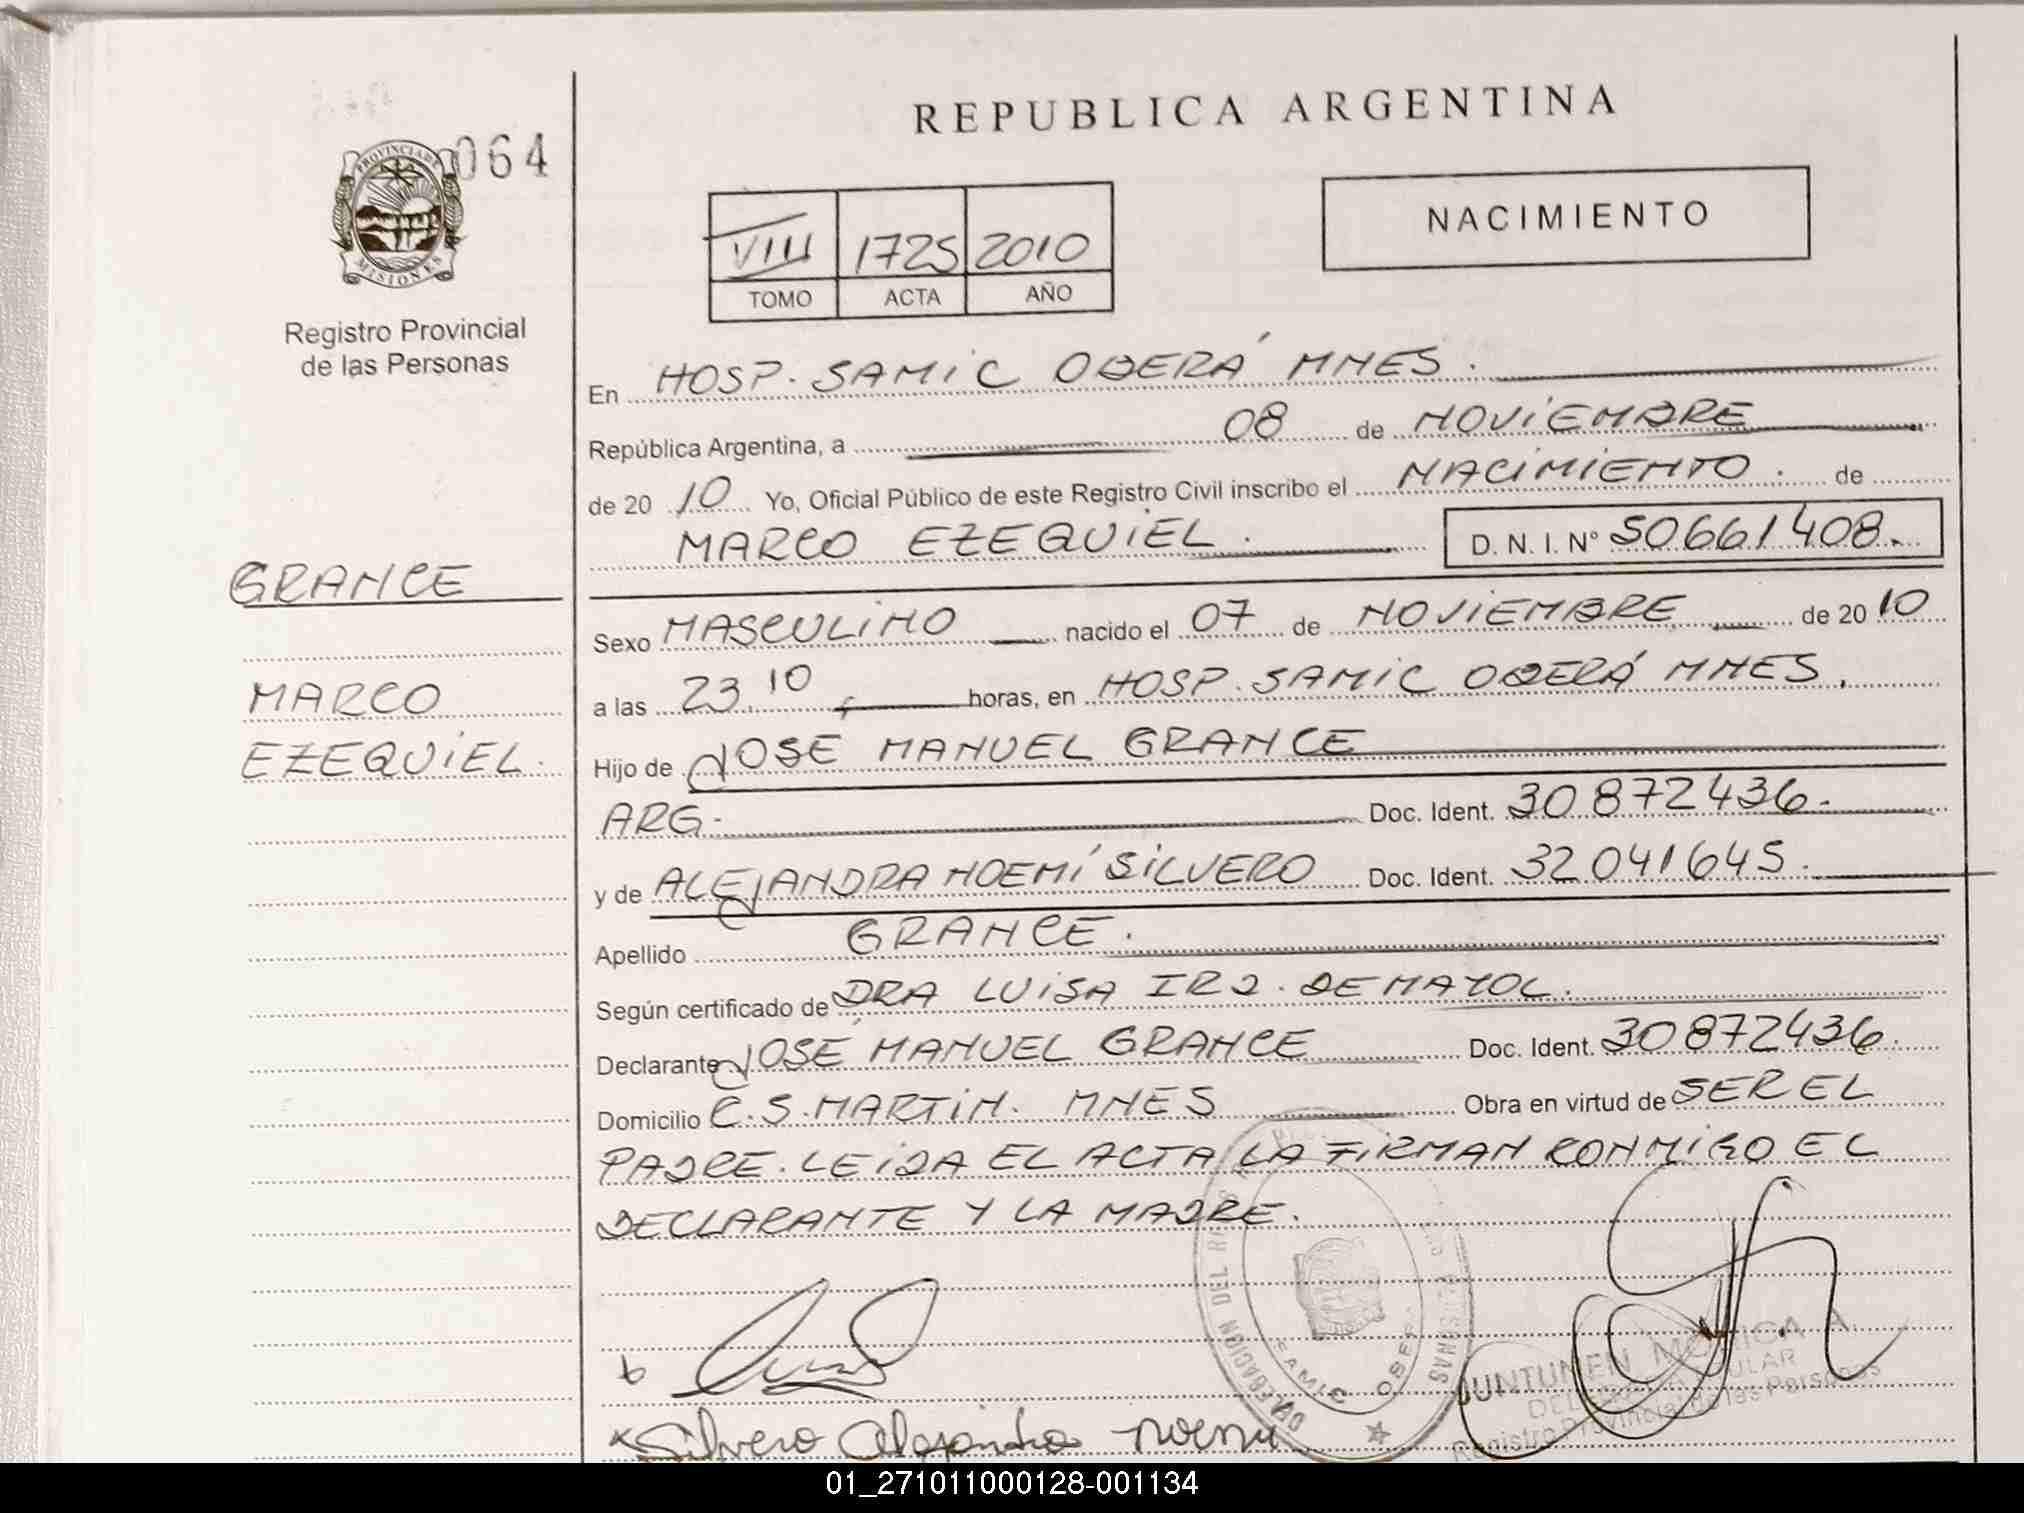 REPUBLICA ARGENTINA
064
PROVINCIA DE
MISIONES
Registro Provincial
de las Personas
VIII 1725 2010
TOMO ACTA AÑO
NACIMIENTO
En HOSP. SAMIC OBERÁ MNES.
República Argentina, a 08 de NOVIEMBRE
de 2010 Yo, Oficial Público de este Registro Civil inscribo el NACIMIENTO. de
MARCO EZEQUIEL. D. N. I. Nº 50661408.
GRANCE
MARCO
EZEQUIEL.
Sexo MASCULINO nacido el 07 de NOVIEMBRE de 2010
a las 23.10 horas, en HOSP. SAMIC OBERÁ MNES.
Hijo de JOSE MANUEL GRANCE
ARG. Doc. Ident. 30872436.
y de ALEJANDRA NOEMÍ SILVERO Doc. Ident. 32041645.
Apellido GRANCE.
Según certificado de DRA LUISA DEMAYOL.
Declarante JOSÉ MANUEL GRANCE Doc. Ident. 30872436.
Domicilio C.S.MARTIN. MNES Obra en virtud de SER EL
PADRE. LEIDA EL ACTA LA FIRMAN CONMIGO EL
DECLARANTE Y LA MADRE.
Silvero Alejandra Noemi
DELEGACION DEL PERSONAS
SAMIC OBERÁ
JUNTUNEN MONICA A.
DELEGADA TITULAR
Registro Provincial de las Personas
01_271011000128-001134